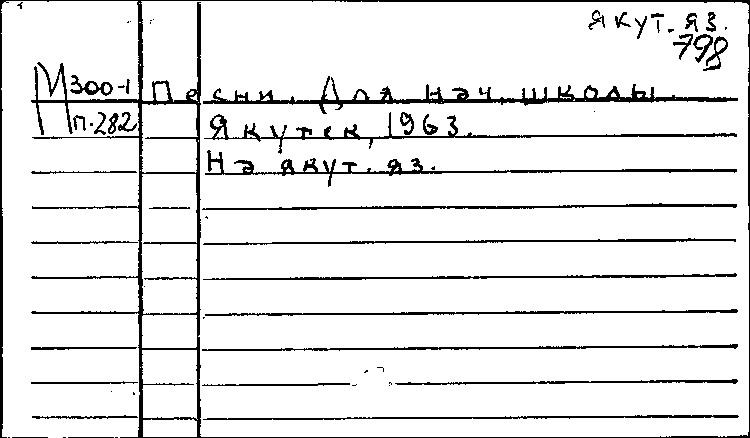 якут. яз.
798
М 300-1 Песни. Для нач. школы.
П-282 Якутск, 1963.
На якут. яз.